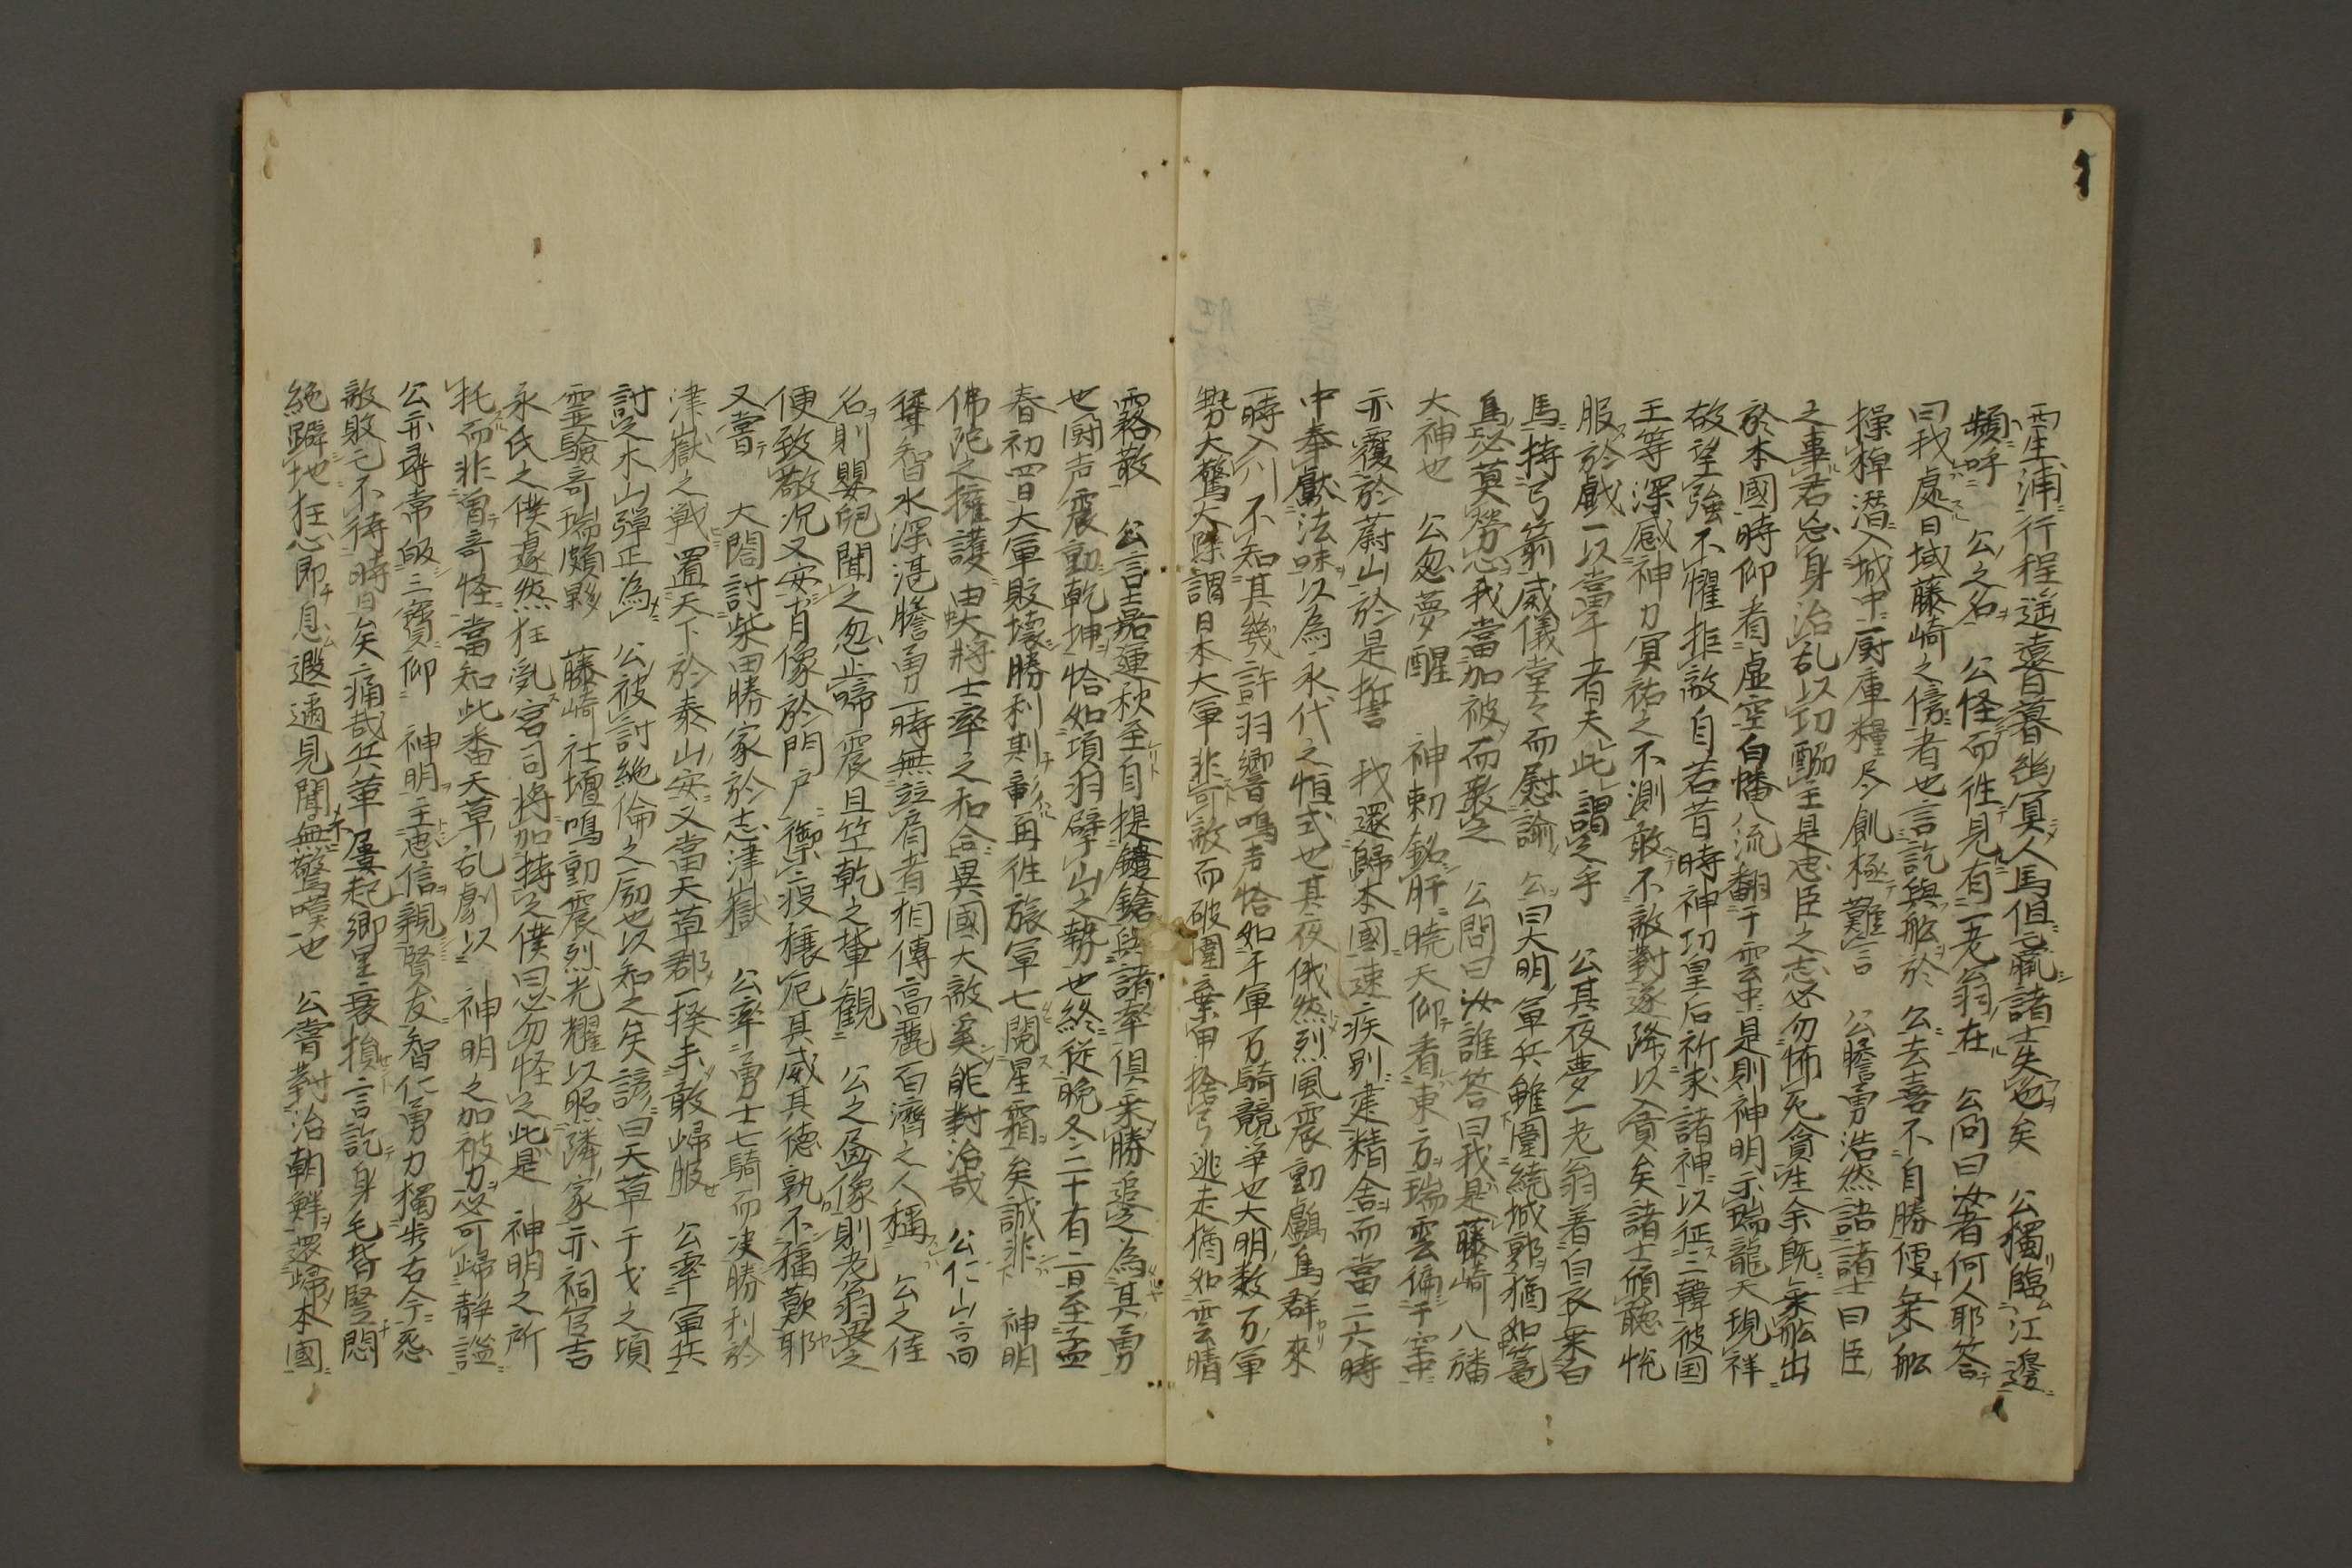 西生浦行程遥遠日暮幽冥人馬俱羸諸士失色矣　公獨臨江邊
頻呼　公之名　公怪而徃見有一老翁在　公向曰汝者何人耶答
曰我處日域藤崎之傍者也言訖與舩於　公去喜不自勝便乗舩
操棹潜入城中厨庫糧尽飢極難言　公膽勇浩然詰諸士曰臣
之事君忘身治乱以功酬主是忠臣之志必勿怖死貪生余既乗舩出
於本國時仰看虚空白幡八流翻于雲中是則神明示瑞龍天現祥
故望強不懼拒敵自若昔時神功皇后祈求諸神以征三韓彼国
王等深感神力冥祐之不測敢不敵對遂降以入貢矣諸士傾聽恱
服於戯一以當千者夫此謂之乎　公其夜夢一老翁着白衣乗白
馬持弓箭威儀堂々而慰諭　公曰大明軍兵雖圍繞城郭猶如篭
鳥必莫勞心我當加被而救之　公問曰汝誰答曰我是藤崎八幡
大神也　公忽夢醒　神勅銘肝曉天仰看東方瑞雲偏于室中
亦覆於蔚山於是誓　我還歸本國速疾別建精舎而當二六時
中奉獻法味以為永代之恒式也其夜俄然烈風震動鸖鳥群來
一時入川不知其幾許羽響鳴声恰如千軍万騎競争也大明数万軍
勢大驚大騒謂日本大軍非可敵而破圍棄甲捨弓逃走猶如雲晴
霧散　公言嘉運秋至自提鑓鎗與諸率倶乗勝追之為其勇
也閧声震動乾坤恰如項羽擘山之勢也終従晩冬二十有二日至孟
春初四日大軍敗壊勝利則彰再徃旅軍七閲星霜矣誠非　神明
佛陀之擁護由大将士率之和合異國大敵奚能對治哉　公仁山高
聳智水深湛膽勇一時無竝肩者相傳高麗百濟之人稱　公之佳
名則嬰兒聞之忽止啼震旦竺乾之輩観　公之畫像則老翁畏之
便致敬况又安肖像於門戸禦疫穰厄其威其德孰不稱歎耶
又嘗　大閤討柴田勝家於志津嶽　公率勇士七騎而决勝利於
津嶽之戦置天下於泰山安又當天草郡一揆未敢歸服　公率軍兵
討之木山彈正為　公被討絶倫之励也以知之矣諺曰天草干戈之頃
霊驗奇瑞頗夥　藤崎社壇鳴動震烈光耀以照隣家亦祠官吉
永氏之僕遽然狂乱宮司将加持之僕曰必勿怪之此是　神明之所
托而非曽奇怪當知此番天草乱劇以　神明之加被力必可歸静謐
公亦尋常皈三寳仰　神明主忠信親賢友智仁勇力獨歩右今悉
敵敗亡不待時日矣痛哉兵革屢起郷里衰損言訖身毛皆竪悶
絶躃地狂心即息遐邇見聞無不驚嘆也　公嘗對治朝鮮還歸本國